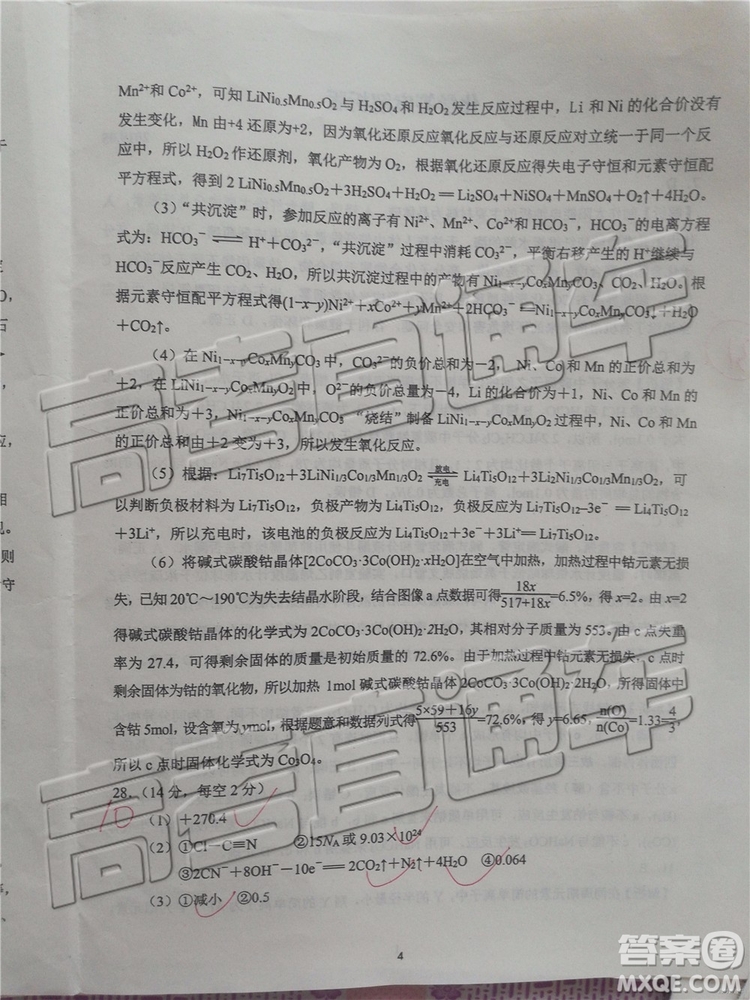 Mn²⁺和 Co²⁺，可知 LiNi₀.₅Mn₀.₅O₂ 与 H₂SO₄ 和 H₂O₂ 发生反应过程中，Li 和 Ni 的化合价没有
发生变化，Mn 由+4 还原为+2，因为氧化还原反应氧化反应与还原反应对立统一于同一个反
应中，所以 H₂O₂ 作还原剂，氧化产物为 O₂，根据氧化还原反应得失电子守恒和元素守恒配
平方程式，得到 2 LiNi₀.₅Mn₀.₅O₂+3H₂SO₄+H₂O₂═Li₂SO₄+NiSO₄+MnSO₄+O₂↑+4H₂O。
（3）“共沉淀”时，参加反应的离子有 Ni²⁺、Mn²⁺、Co²⁺和 HCO₃⁻，HCO₃⁻的电离方程
式为：HCO₃⁻⇌H⁺+CO₃²⁻，“共沉淀”过程中消耗 CO₃²⁻，平衡右移产生的 H⁺继续与
HCO₃⁻反应产生 CO₂、H₂O，所以共沉淀过程中的产物有 Ni₁₋ₓ₋yCoₓMnyCO₃、CO₂、H₂O。根
据元素守恒配平方程式得(1-x-y)Ni²⁺+xCo²⁺+yMn²⁺+2HCO₃⁻═Ni₁₋ₓ₋yCoₓMnyCO₃↓+H₂O
+CO₂↑。
（4）在 Ni₁₋ₓ₋yCoₓMnyCO₃ 中，CO₃²⁻的负价总和为−2，Ni、Co 和 Mn 的正价总和为
+2，在 LiNi₁₋ₓ₋yCoₓMnyO₂ 中，O²⁻的负价总量为−4，Li 的化合价为+1，Ni、Co 和 Mn 的
正价总和为+3，Ni₁₋ₓ₋yCoₓMnyCO₃ “烧结”制备 LiNi₁₋ₓ₋yCoₓMnyO₂ 过程中，Ni、Co 和 Mn
的正价总和由+2 变为+3，所以发生氧化反应。
（5）根据：Li₇Ti₅O₁₂+3LiNi₁/₃Co₁/₃Mn₁/₃O₂ 放电⇌充电 Li₄Ti₅O₁₂+3Li₂Ni₁/₃Co₁/₃Mn₁/₃O₂，可
以判断负极材料为 Li₇Ti₅O₁₂，负极产物为 Li₄Ti₅O₁₂，负极反应为 Li₇Ti₅O₁₂−3e⁻═Li₄Ti₅O₁₂
+3Li⁺，所以充电时，该电池的负极反应为 Li₄Ti₅O₁₂+3e⁻+3Li⁺═Li₇Ti₅O₁₂。
（6）将碱式碳酸钴晶体[2CoCO₃·3Co(OH)₂·xH₂O]在空气中加热，加热过程中钴元素无损
失，已知 20℃～190℃为失去结晶水阶段，结合图像 a 点数据可得18x/(517+18x)=6.5%，得 x=2。由 x=2
得碱式碳酸钴晶体的化学式为 2CoCO₃·3Co(OH)₂·2H₂O，其相对分子质量为 553。由 c 点失重
率为 27.4，可得剩余固体的质量是初始质量的 72.6%。由于加热过程中钴元素无损失，c 点时
剩余固体为钴的氧化物，所以加热 1mol 碱式碳酸钴晶体 2CoCO₃·3Co(OH)₂·2H₂O，所得固体中
含钴 5mol，设含氧为 ymol，根据题意和数据列式得(5×59+16y)/553=72.6%，得 y=6.65，n(O)/n(Co)=1.33=4/3，
所以 c 点时固体化学式为 Co₃O₄。
28.（14 分，每空 2 分）
10
（1）+270.4
（2）①Cl−C≡N ②15Nₐ或 9.03×10²⁴
③2CN⁻+8OH⁻−10e⁻═2CO₂↑+N₂↑+4H₂O ④0.064
（3）①减小 ②0.5
4
高考直通车
高考直通车
答案圈
MXQE.COM